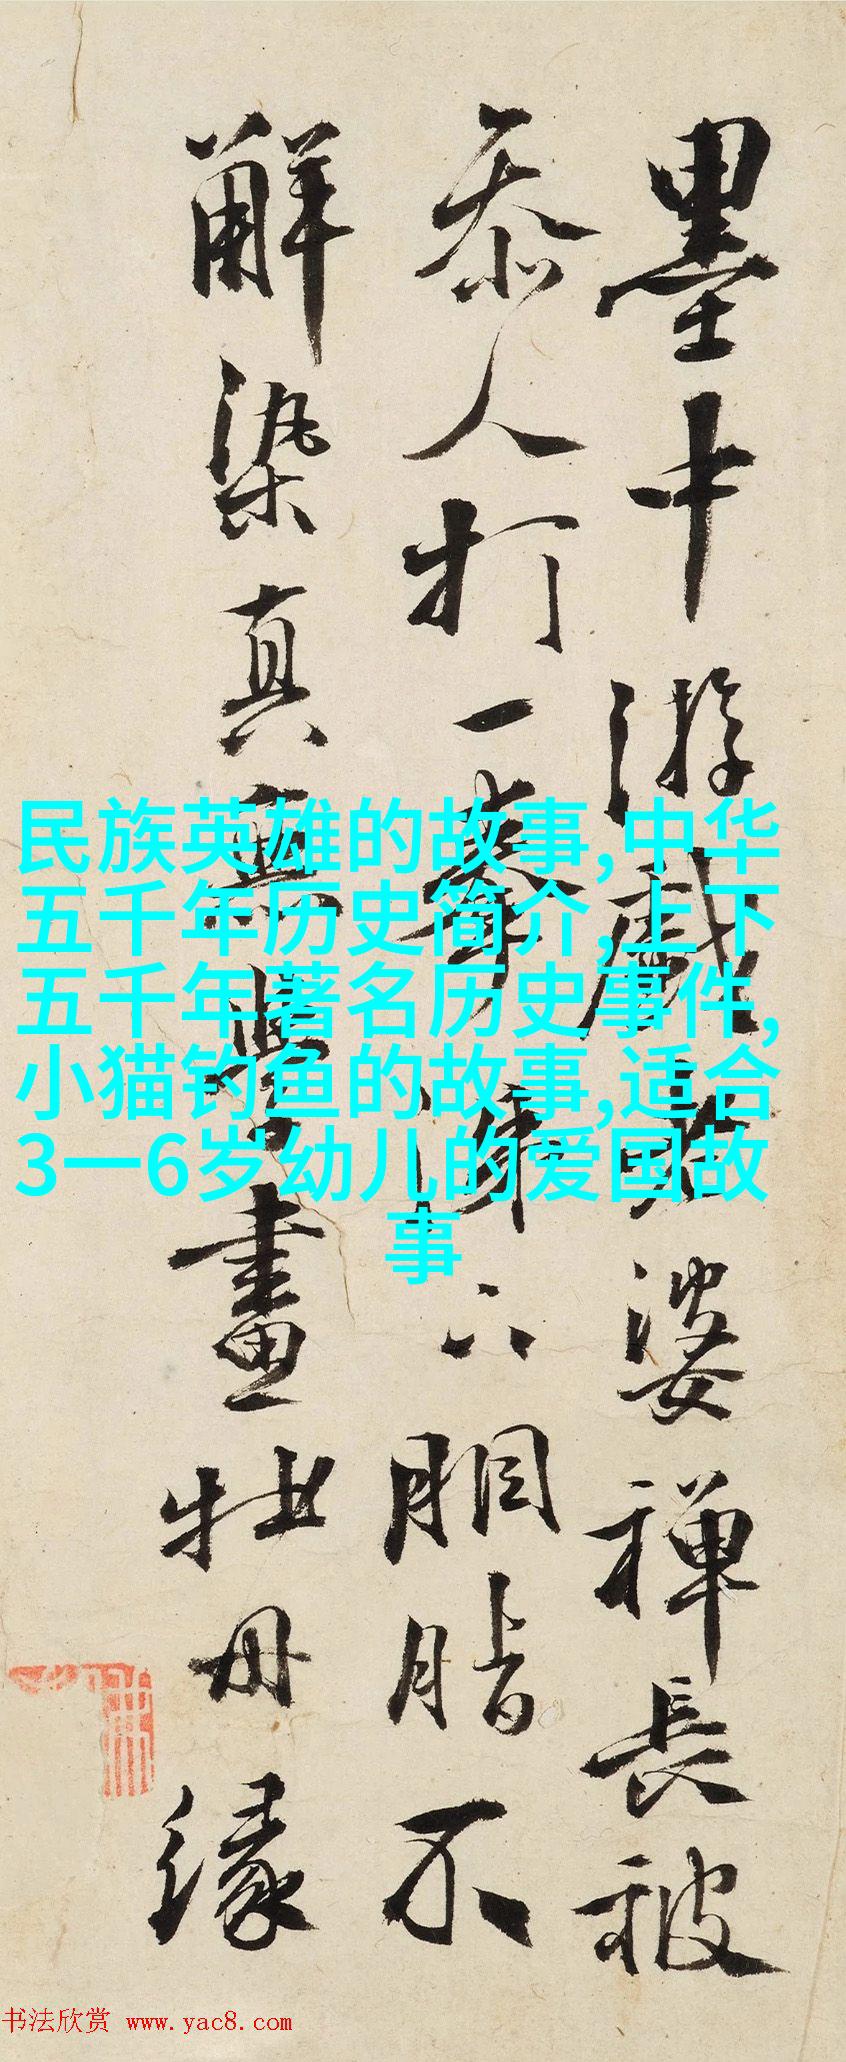 墨中游戲老婆禪長被
參人打一拳涕下胭脂不
解染真無學畫牡丹緣
民族英雄的故事,中华
五千年历史简介,上下
五千年著名历史事件,
小猫钓鱼的故事,适合
3一6岁幼儿的爱国故
事
书法欣赏 www.yac8.com